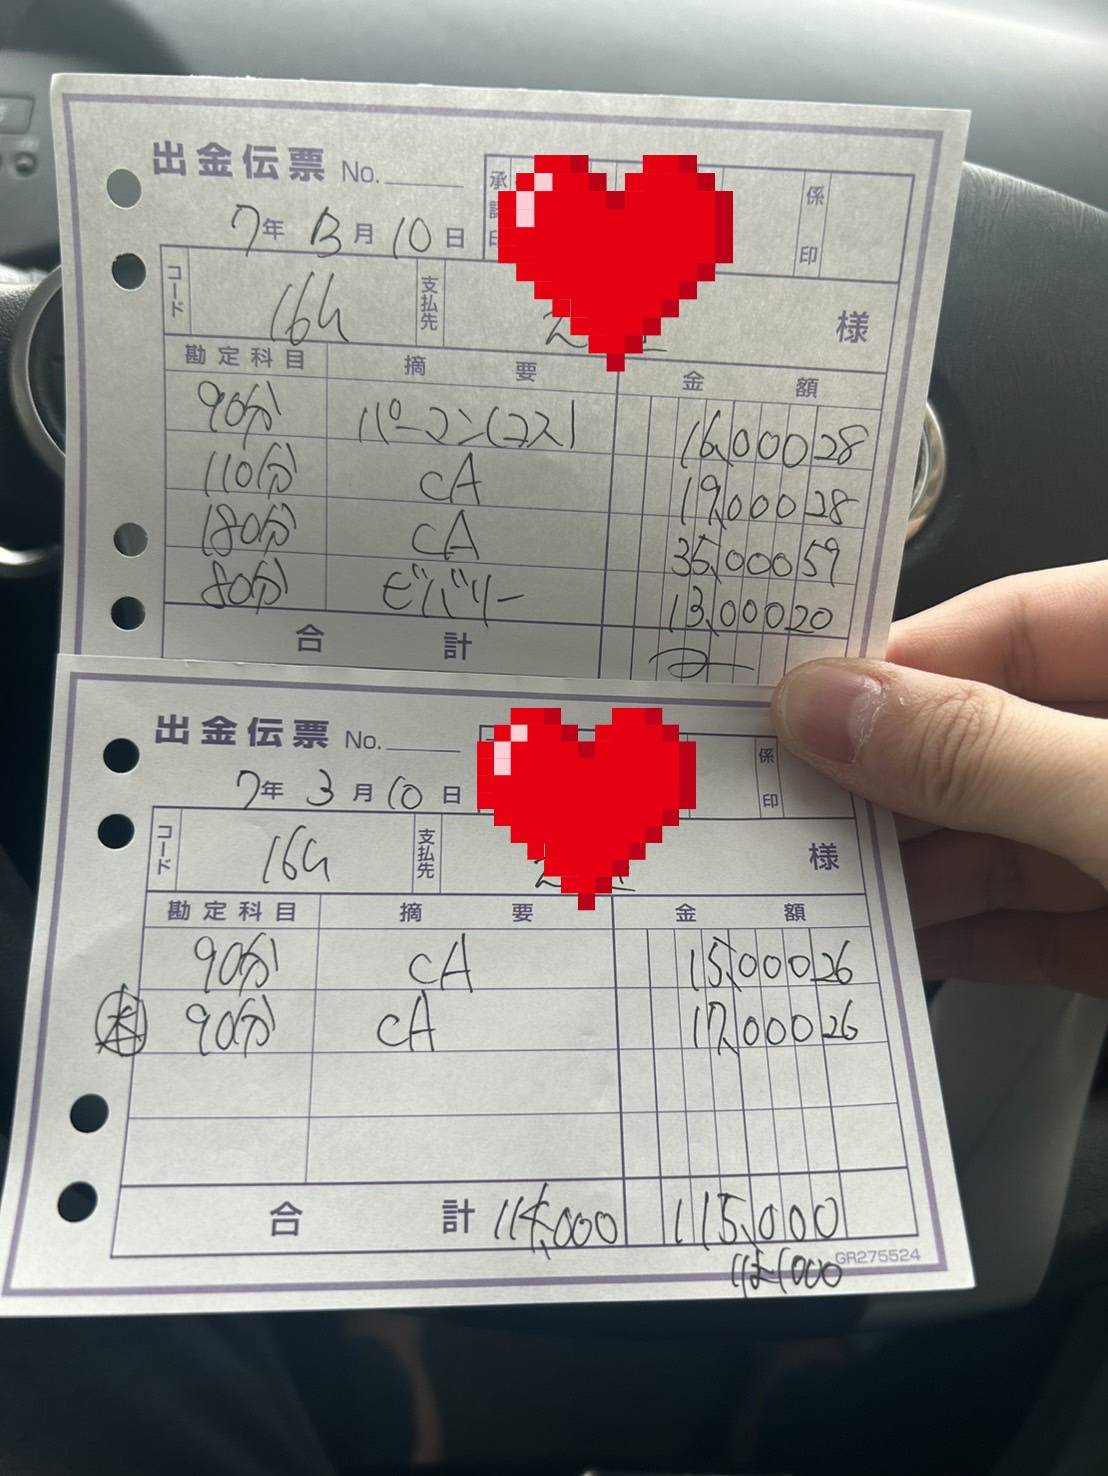 出金伝票 No.
承認印
係印
7年 3月 10日
コード 164 支払先 様
勘定科目 摘要 金額
90分 パーマン(コス) 16,000 28
110分 CA 19,000 28
180分 CA 35,000 59
80分 ビバリー 13,000 20
合計
出金伝票 No.
係印
7年 3月 10日
コード 164 支払先 様
勘定科目 摘要 金額
90分 CA 15,000 26
本 90分 CA 17,000 26
合計 114,000 115,000
GR275524
は1000